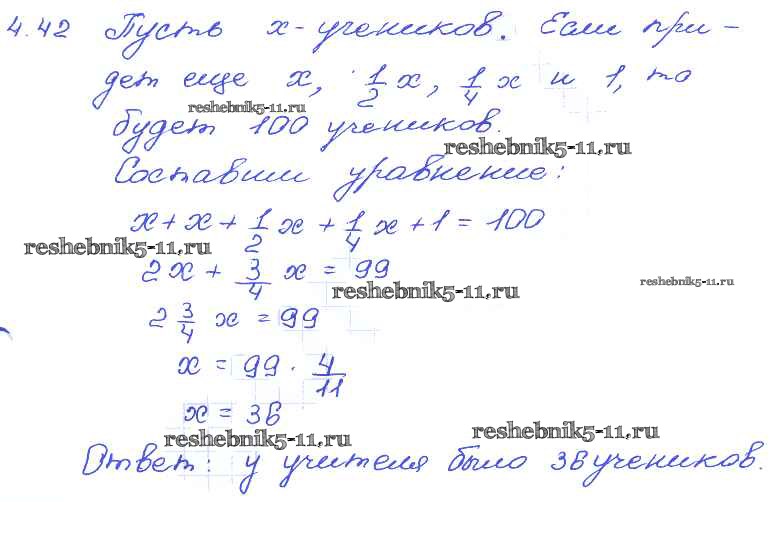 4.42 Пусть х - учеников. Если при-
дет еще х, 1/2 х, 1/4 х и 1, то
reshebnik5-11.ru
будет 100 учеников.
reshebnik5-11.ru
Составим уравнение:
х + х + 1/2 х + 1/4 х + 1 = 100
reshebnik5-11.ru
2х + 3/4 х = 99
reshebnik5-11.ru
reshebnik5-11.ru
2 3/4 х = 99
х = 99 · 4/11
х = 36
reshebnik5-11.ru
reshebnik5-11.ru
Ответ: у учителя было 36 учеников.